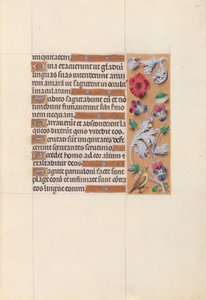 iniquitatem
Quia exacuerunt ut gladiu
linguas suas intenderunt arcu
rem amara ut sagittent in occul
Subito sagittabunt eu et no
timebunt firmaverunt sibi sermo
nem nequam
narraverunt ut absconderent la
queos dixerunt quis videbit eos
Scrutati sunt iniquitates defe
cerunt scrutantes scrutinio
Accedet homo ad cor altum et
exaltabitur deus
Sagitte parvulorum facte sunt
plage eorum et infirmate sunt contra
eos lingue eorum